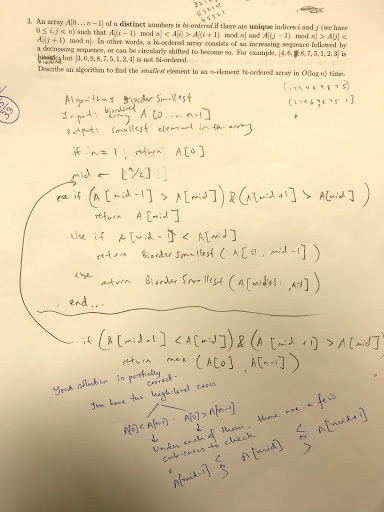 3. An array A[0 . . . n − 1] of n distinct numbers is bi-ordered if there are unique indices i and j (we have
0 ≤ i, j < n) such that A[(i − 1) mod n] < A[i] > A[(i + 1) mod n] and A[(j − 1) mod n] > A[j] <
A[(j + 1) mod n]. In other words, a bi-ordered array consists of an increasing sequence followed by
a decreasing sequence, or can be circularly shifted to become so. For example, [4, 6, 9, 8, 7, 5, 1, 2, 3] is
but [3, 6, 9, 8, 7, 5, 1, 2, 4] is not bi-ordered.
Describe an algorithm to find the smallest element in an n-element bi-ordered array in O(log n) time.
Algorithm: Biorder Smallest
Input: biordered array A [0 ... n-1]
Output: smallest element in the array
if n = 1; return A[0]
mid ← ⌊n/2⌋
else if (A [mid-1] > A[mid]) & (A[mid+1] > A[mid])
return A [mid]
else if A [mid-1] < A[mid]
return Biordersmallest (A [0, mid-1])
else
return Biorder Smallest (A [mid+1, n-1])
end...
if (A [mid-1] < A[mid]) & (A [mid+1] > A[mid])
return max (A[0], A[n-1])
Your solution is partially
correct.
You have two high level cases
A[0]<A[n-1] A[0]>A[n-1]
Under each of them, there are a few
sub-cases to check
A[mid-1] < > A[mid] < or > A[mid+1]